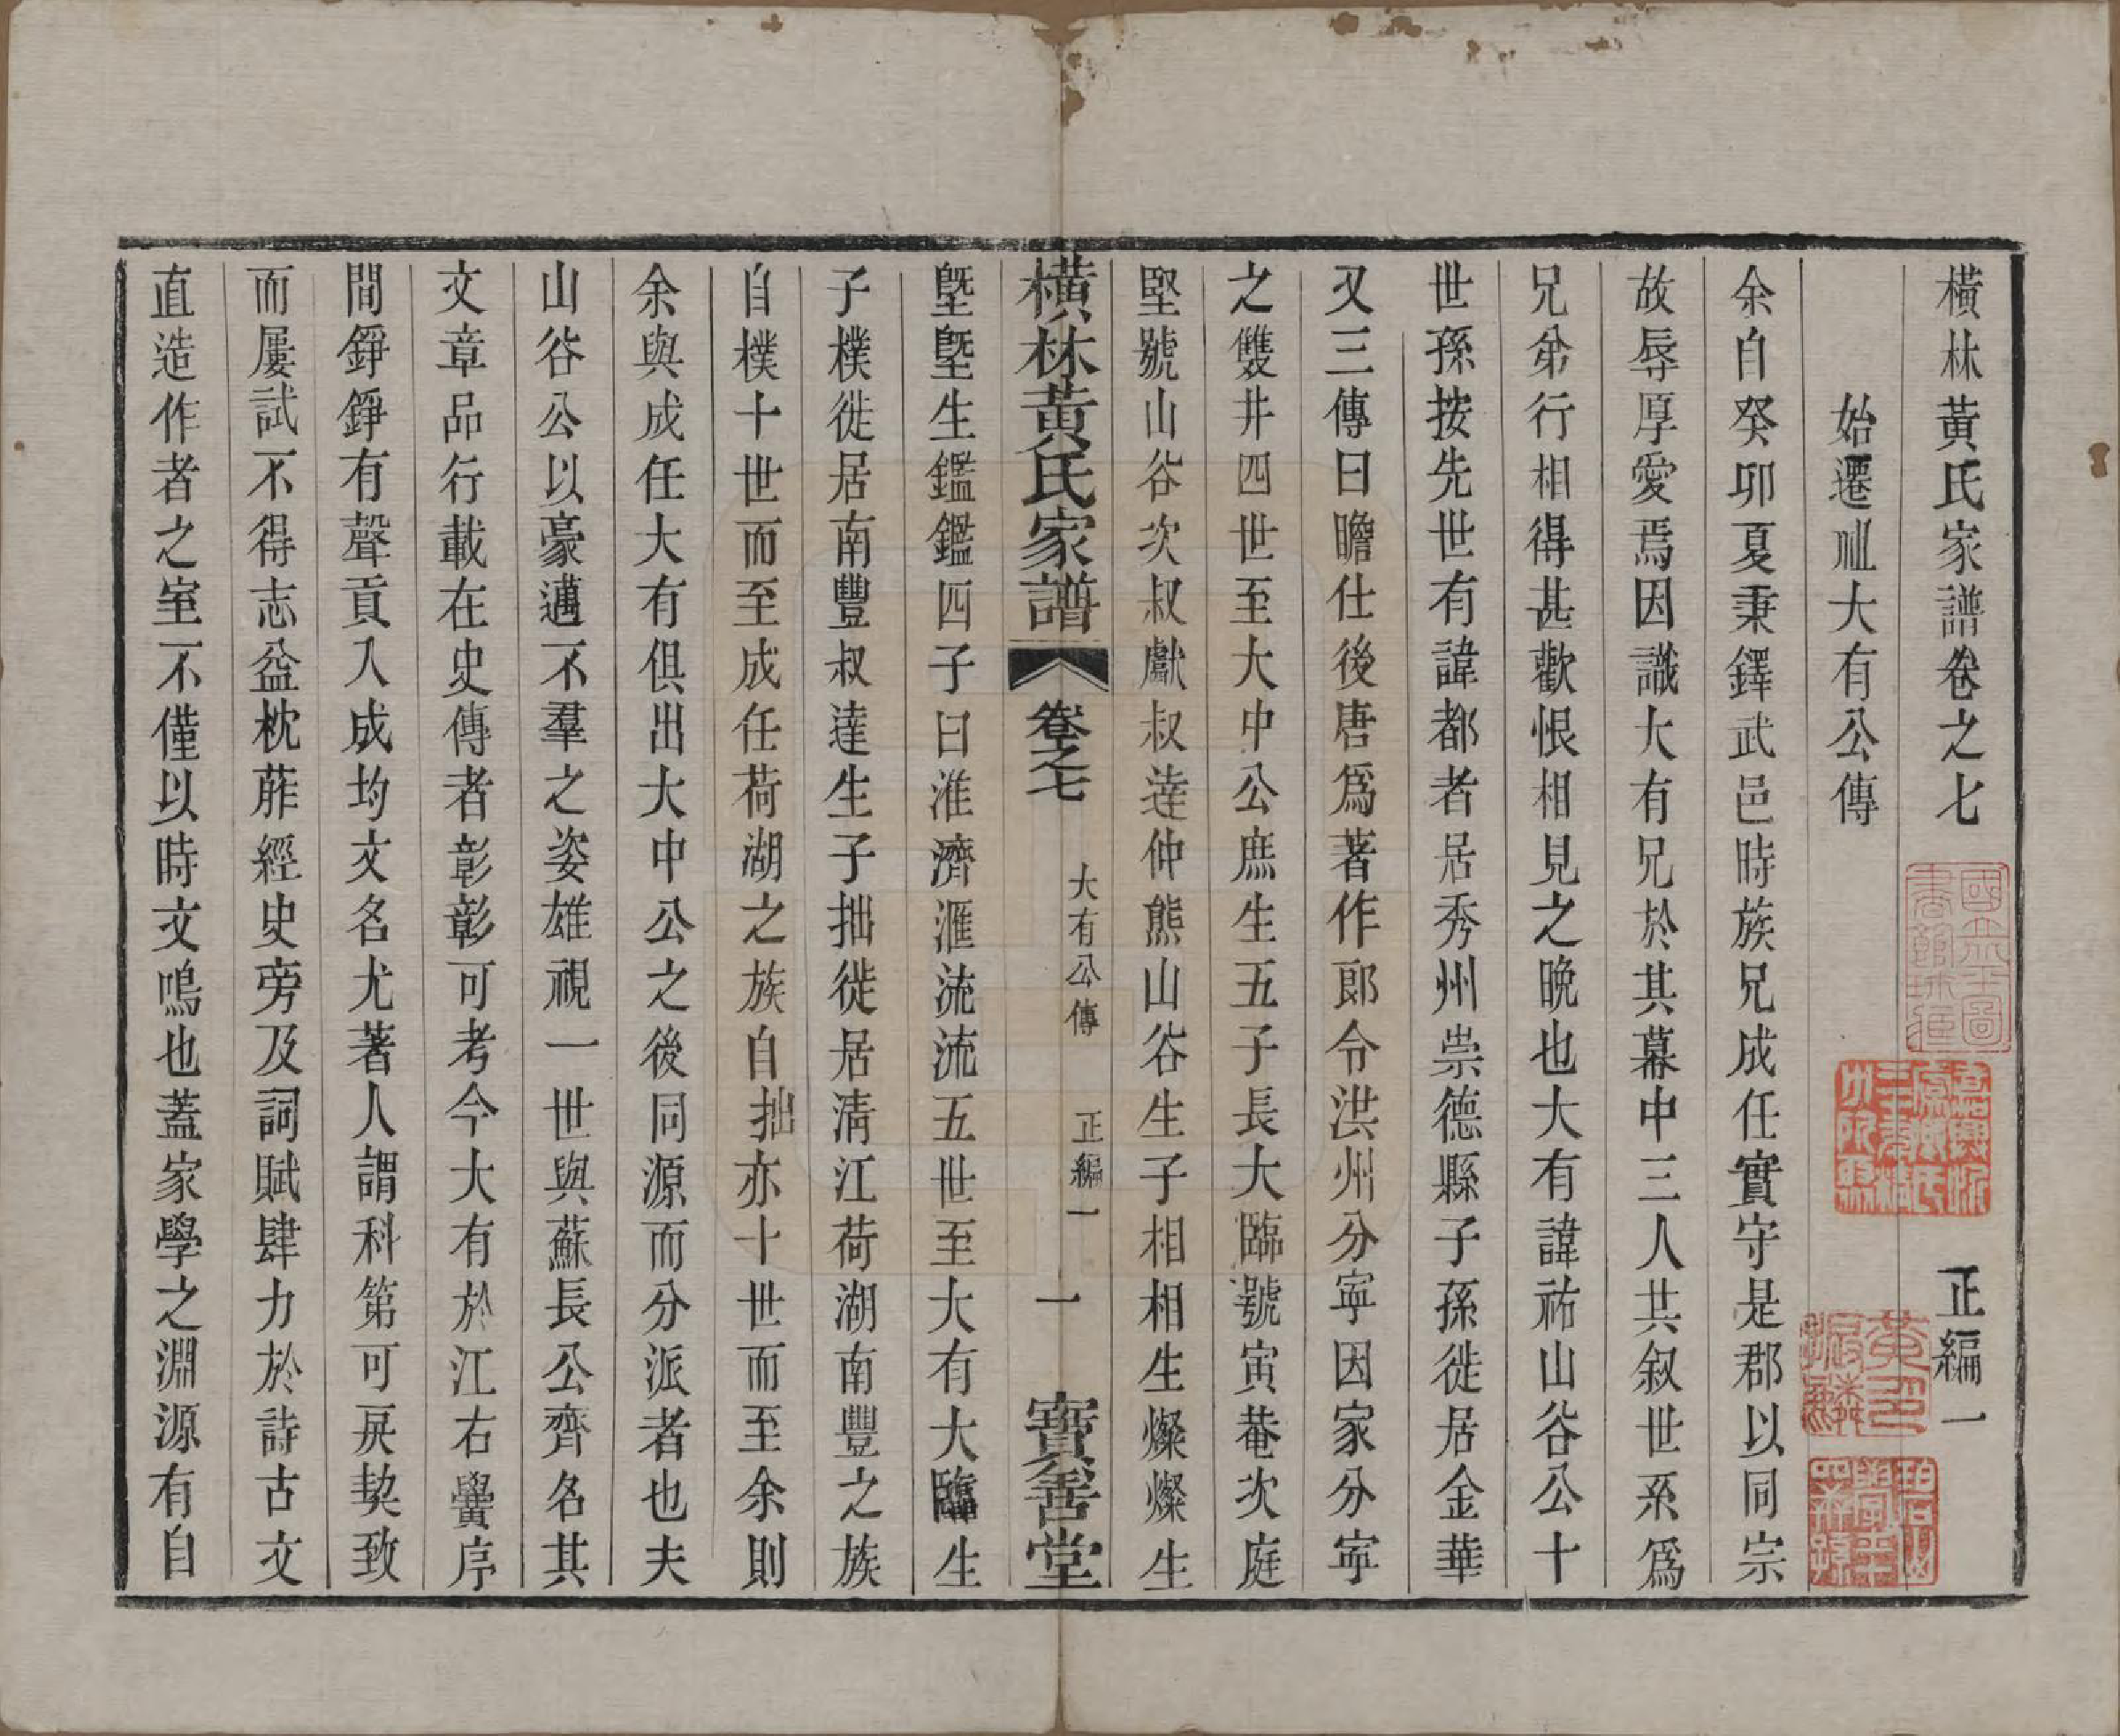 橫林黃氏家譜卷之七　正編一
始遷祖大有公傳
余自癸卯夏秉鐸武邑時族兄成任實守是郡以同宗
故辱厚愛焉因識大有兄於其幕中三人共叙世系爲
兄弟行相得甚歡恨相見之晚也大有諱祐山谷公十
世孫按先世有諱都者居秀州崇德縣子孫徙居金華
又三傳曰瞻仕後唐爲著作郎令洪州分寧因家分寧
之雙井四世至大中公庶生五子長大臨號寅菴次庭
堅號山谷次叔獻叔達仲熊山谷生子相相生燦燦生
墍墍生鑑鑑四子曰淮濟滙流流五世至大有大臨生
子樸徙居南豐叔達生子拙徙居淸江荷湖南豐之族
自樸十世而至成任荷湖之族自拙亦十世而至余則
余與成任大有俱出大中公之後同源而分派者也夫
山谷公以豪邁不羣之姿雄視一世與蘇長公齊名其
文章品行載在史傳者彰彰可考今大有於江右黌序
間錚錚有聲貢入成均文名尤著人謂科第可戾契致
而屢試不得志益枕葄經史旁及詞賦肆力於詩古文
直造作者之室不僅以時文鳴也蓋家學之淵源有自
橫林黃氏家譜　卷之七　大有公傳　正編一　一　寶善堂
國立中央圖書館珍藏
黃印振麟